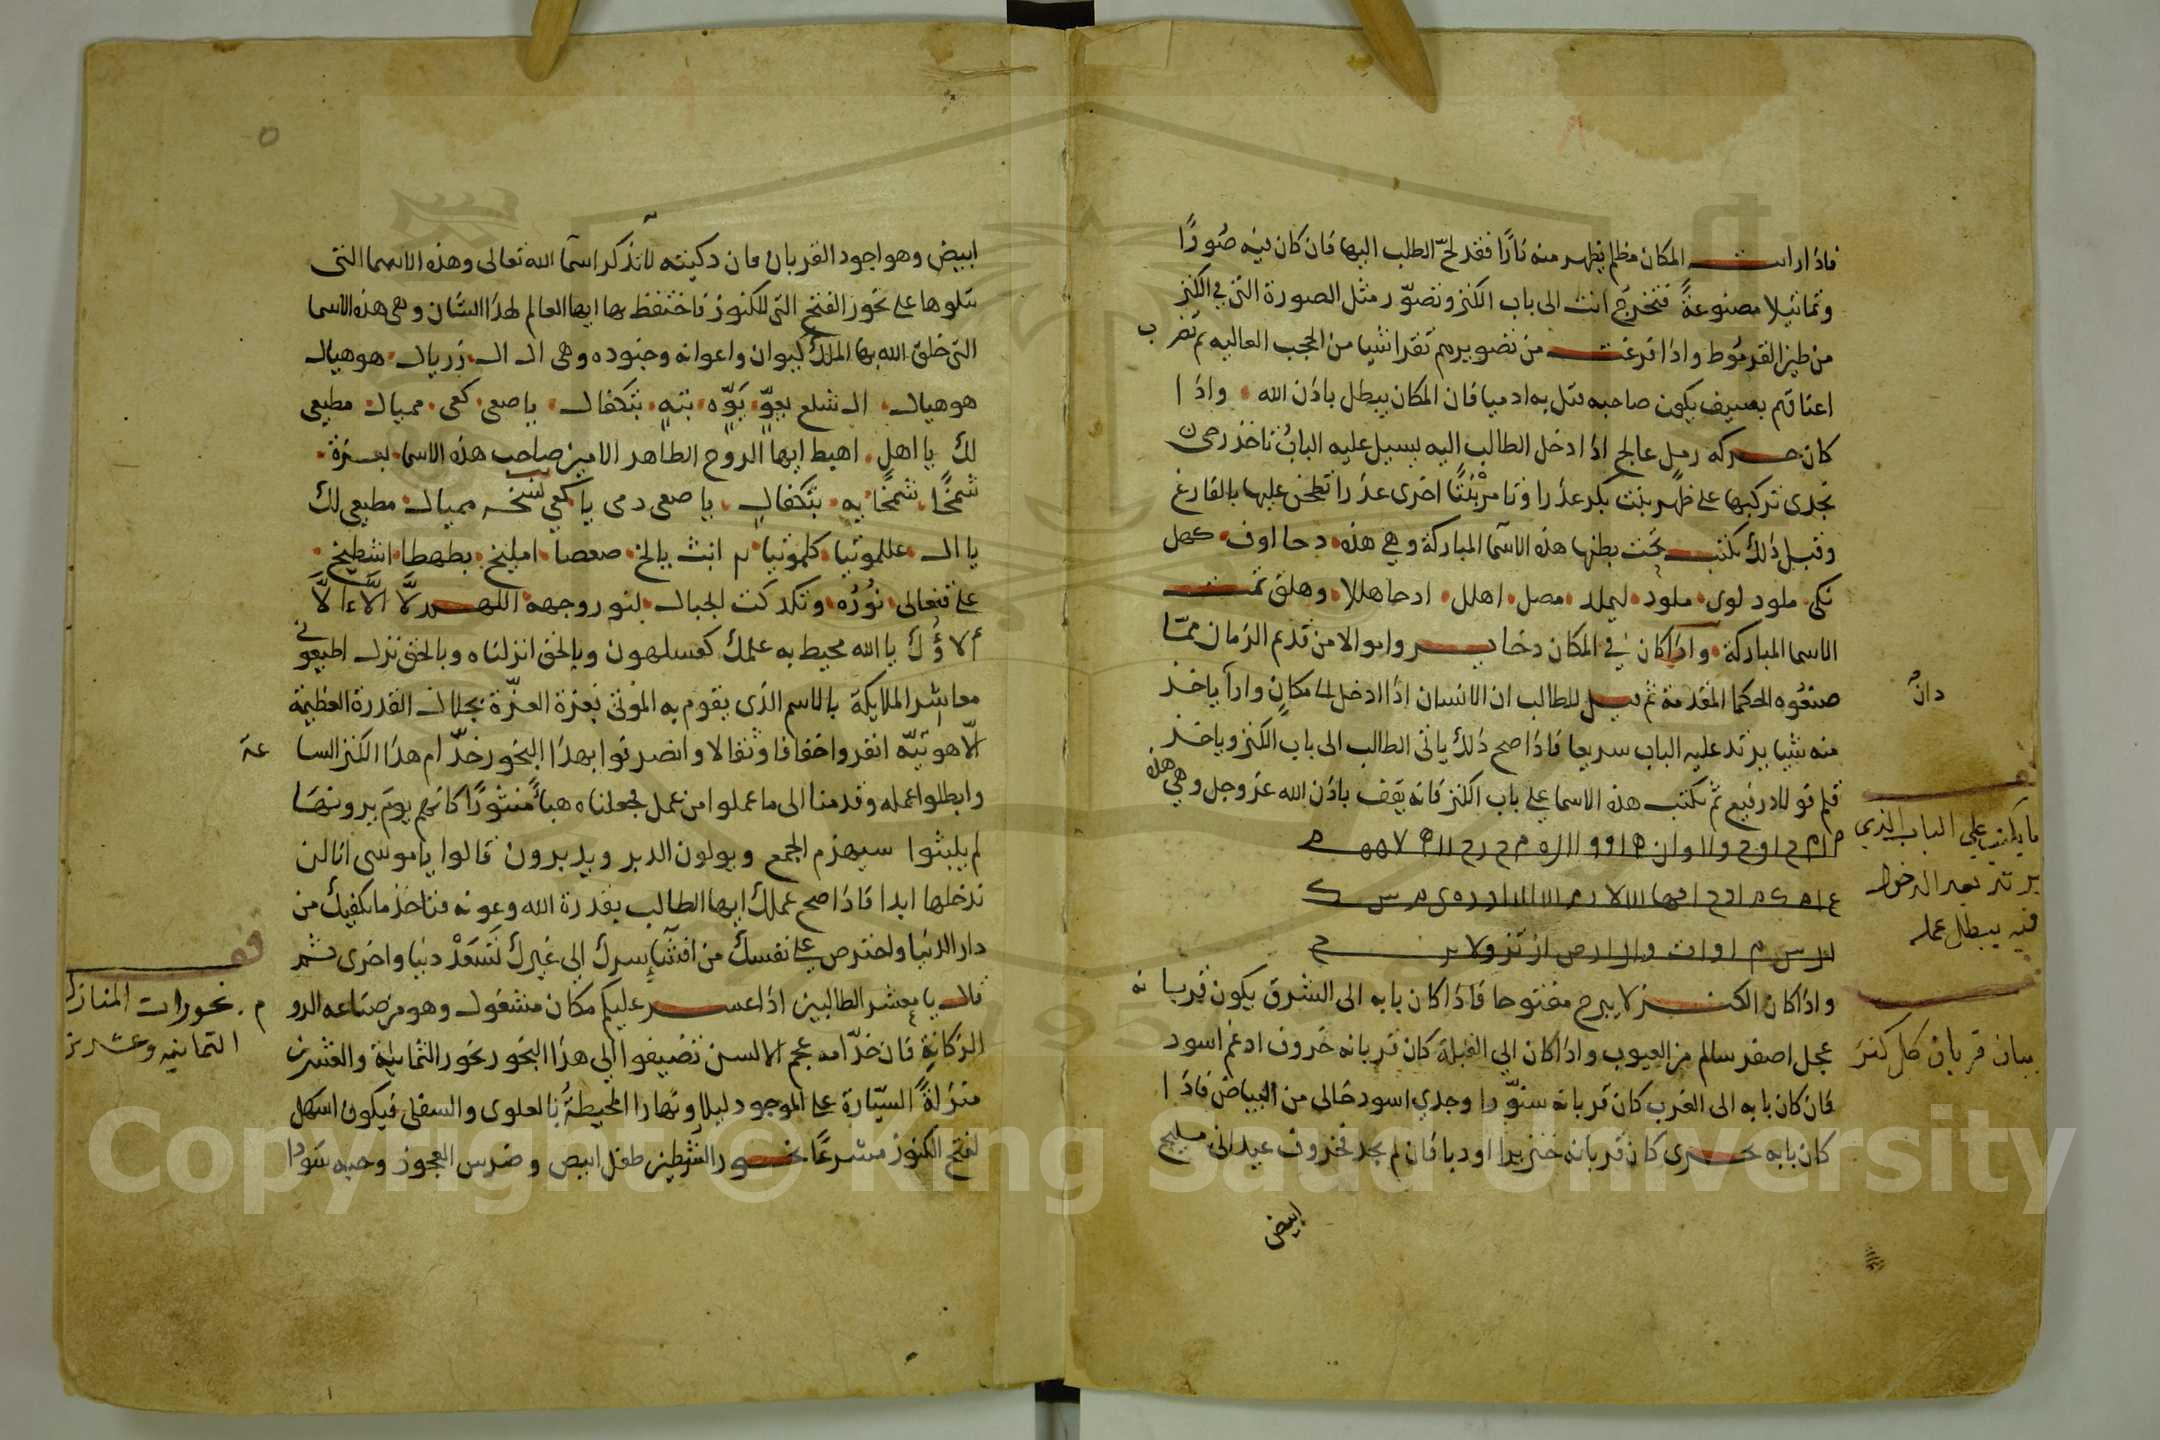 فاذا رايت المكان مظلم يظهر منه نارا فقد لحّ الطلب اليها فان كان فيه صورا
وتماثيلا مصنوعة فتخرج انت الى باب الكنز وتصوّر مثل الصورة التى في الكنز
من طين القرموط واذا فرغت من تصويرهم تقرا شيا من الحجب العاليه ثم تضرب
اعناقهم بسيف يكون صاحبه قتل به ادميا فان المكان يبطل باذن الله واذا
كان حركه رمل عالج اذا دخل الطالب اليه يسيل عليه الباب تاخذ رحى
تجدى تركبها على ظهر بنت بكر عذرا وتامر بنتا اخرى عذرا تطحن عليها بالفارغ
وقبل ذلك تكتب تحت بطنها هذه الاسما المباركة وهي هذه دحا اوف كهل
نكى ملود لوى ملود ليملد مصل اهلل ادحا هللا وهلق تمت
الاسما المباركة واذا كان في المكان دخاير واموالا من قديم الزمان ممّا
صنعوه الحكما المتقدمة ثم سبيل للطالب ان الانسان اذا ادخل الى مكان واراد ياخذ
دانٌ
منه شيا يرتد عليه الباب سريعا فاذا صح ذلك ياتى الطالب الى باب الكنز وياخذ
قلم فولاد رفيع ثم يكتب هذه الاسما على باب الكنز فانه يقف باذن الله عز وجل وهي هذه
ما يكتب على الباب الذي
يرتد بعد الدخول
فيه يبطل عمله
واذا كان الكنز لا يبرح مفتوحا فاذا كان بابه الى الشرق يكون قربانه
عجل اصفر سالم من العيوب واذا كان الى القبلة كان قربانه خروف ادغم اسود
بيان قربان كل كنز
فان كان بابه الى الغرب كان قربانه سنوّرا وجدي اسود خالى من البياض فاذا
كان بابه بحرى كان قربانه خنزيرا او دبا فان لم يجد فخروف عيدانى مليح
ابيض
ابيض وهو اجود القربان فان دكيته لا تذكر اسما الله تعالى وهذه الاسما التى
تتلوها على بخور الفتح التى للكنوز فاحتفظ بها ايها العالم لهذا الشان وهى هذه الاسما
التى خلق الله بها الملك كيوان واعوانه وجنوده وهى ال ال زريال هوهيال
هوهيال ال شلع يعوّ يَوّه بته بتكفال ياصعى كعى ممیال مطيعى
لك يا اهل اهبط ايها الروح الطاهر الامين صاحب هذه الاسما بعزة
شمخًا شمخًا يه بتكفال يا صعى دمى يا كعى نسخه ممیال مطيعى لك
يا ال عللموتيا كلموتيا م انت ببالخ صعصا امليخ بطهطا اشطيخ
على فتعالى نوره وتكدكت الجبال لنور وجهه اللهم لاَّ اَلاَّء اَلاَّ
ألاؤُك يا الله محيط به علمك كعسلهون وبالحق انزلناه وبالحق نزل اطيعونى
معاشر الملايكة بالاسم الذى يقوم به الموتى بعزة العزّة بجلال القدرة العظيمة
الاّ هو تيّه انفروا خفافا وثقالا وانصرفوا بهذا البخور خدّام هذا الكنز الساعة
وابطلوا عمله وقدمنا الى ما عملوا من عمل فجعلناه هباًء منثورًا كانهم يوم يرونها
لم يلبثوا سيهزم الجمع ويولون الدبر ويدبرون قالوا يا موسى انا لن
ندخلها ابدا فاذا صح عملك ايها الطالب بقدرة الله وعونه فتاخذ ما يكفيك من
دار الدنيا واحترص على نفسك من افشآء سرك الى غيرك تَسعَدْ دنيا واخرى ثم
قلا يا معشر الطالبين اذا عسر عليكم مكان مشغول وهو من صناعه الرو
م. بخورات المنازل
الزكانة فان خدّامه عجم الالسن تضيفوا الى هذا البخور بخور الثمانية والعشرين
الثمانيه وعشرين
منزلةً السيّارة على الموجود ليلا ونهارا المحيطةُ بالعلوى والسفلى فيكون اسهل
لفتح الكنوز مسرعًا بخور الشرطين طفل ابيض وضرس العجوز وحبه سودا